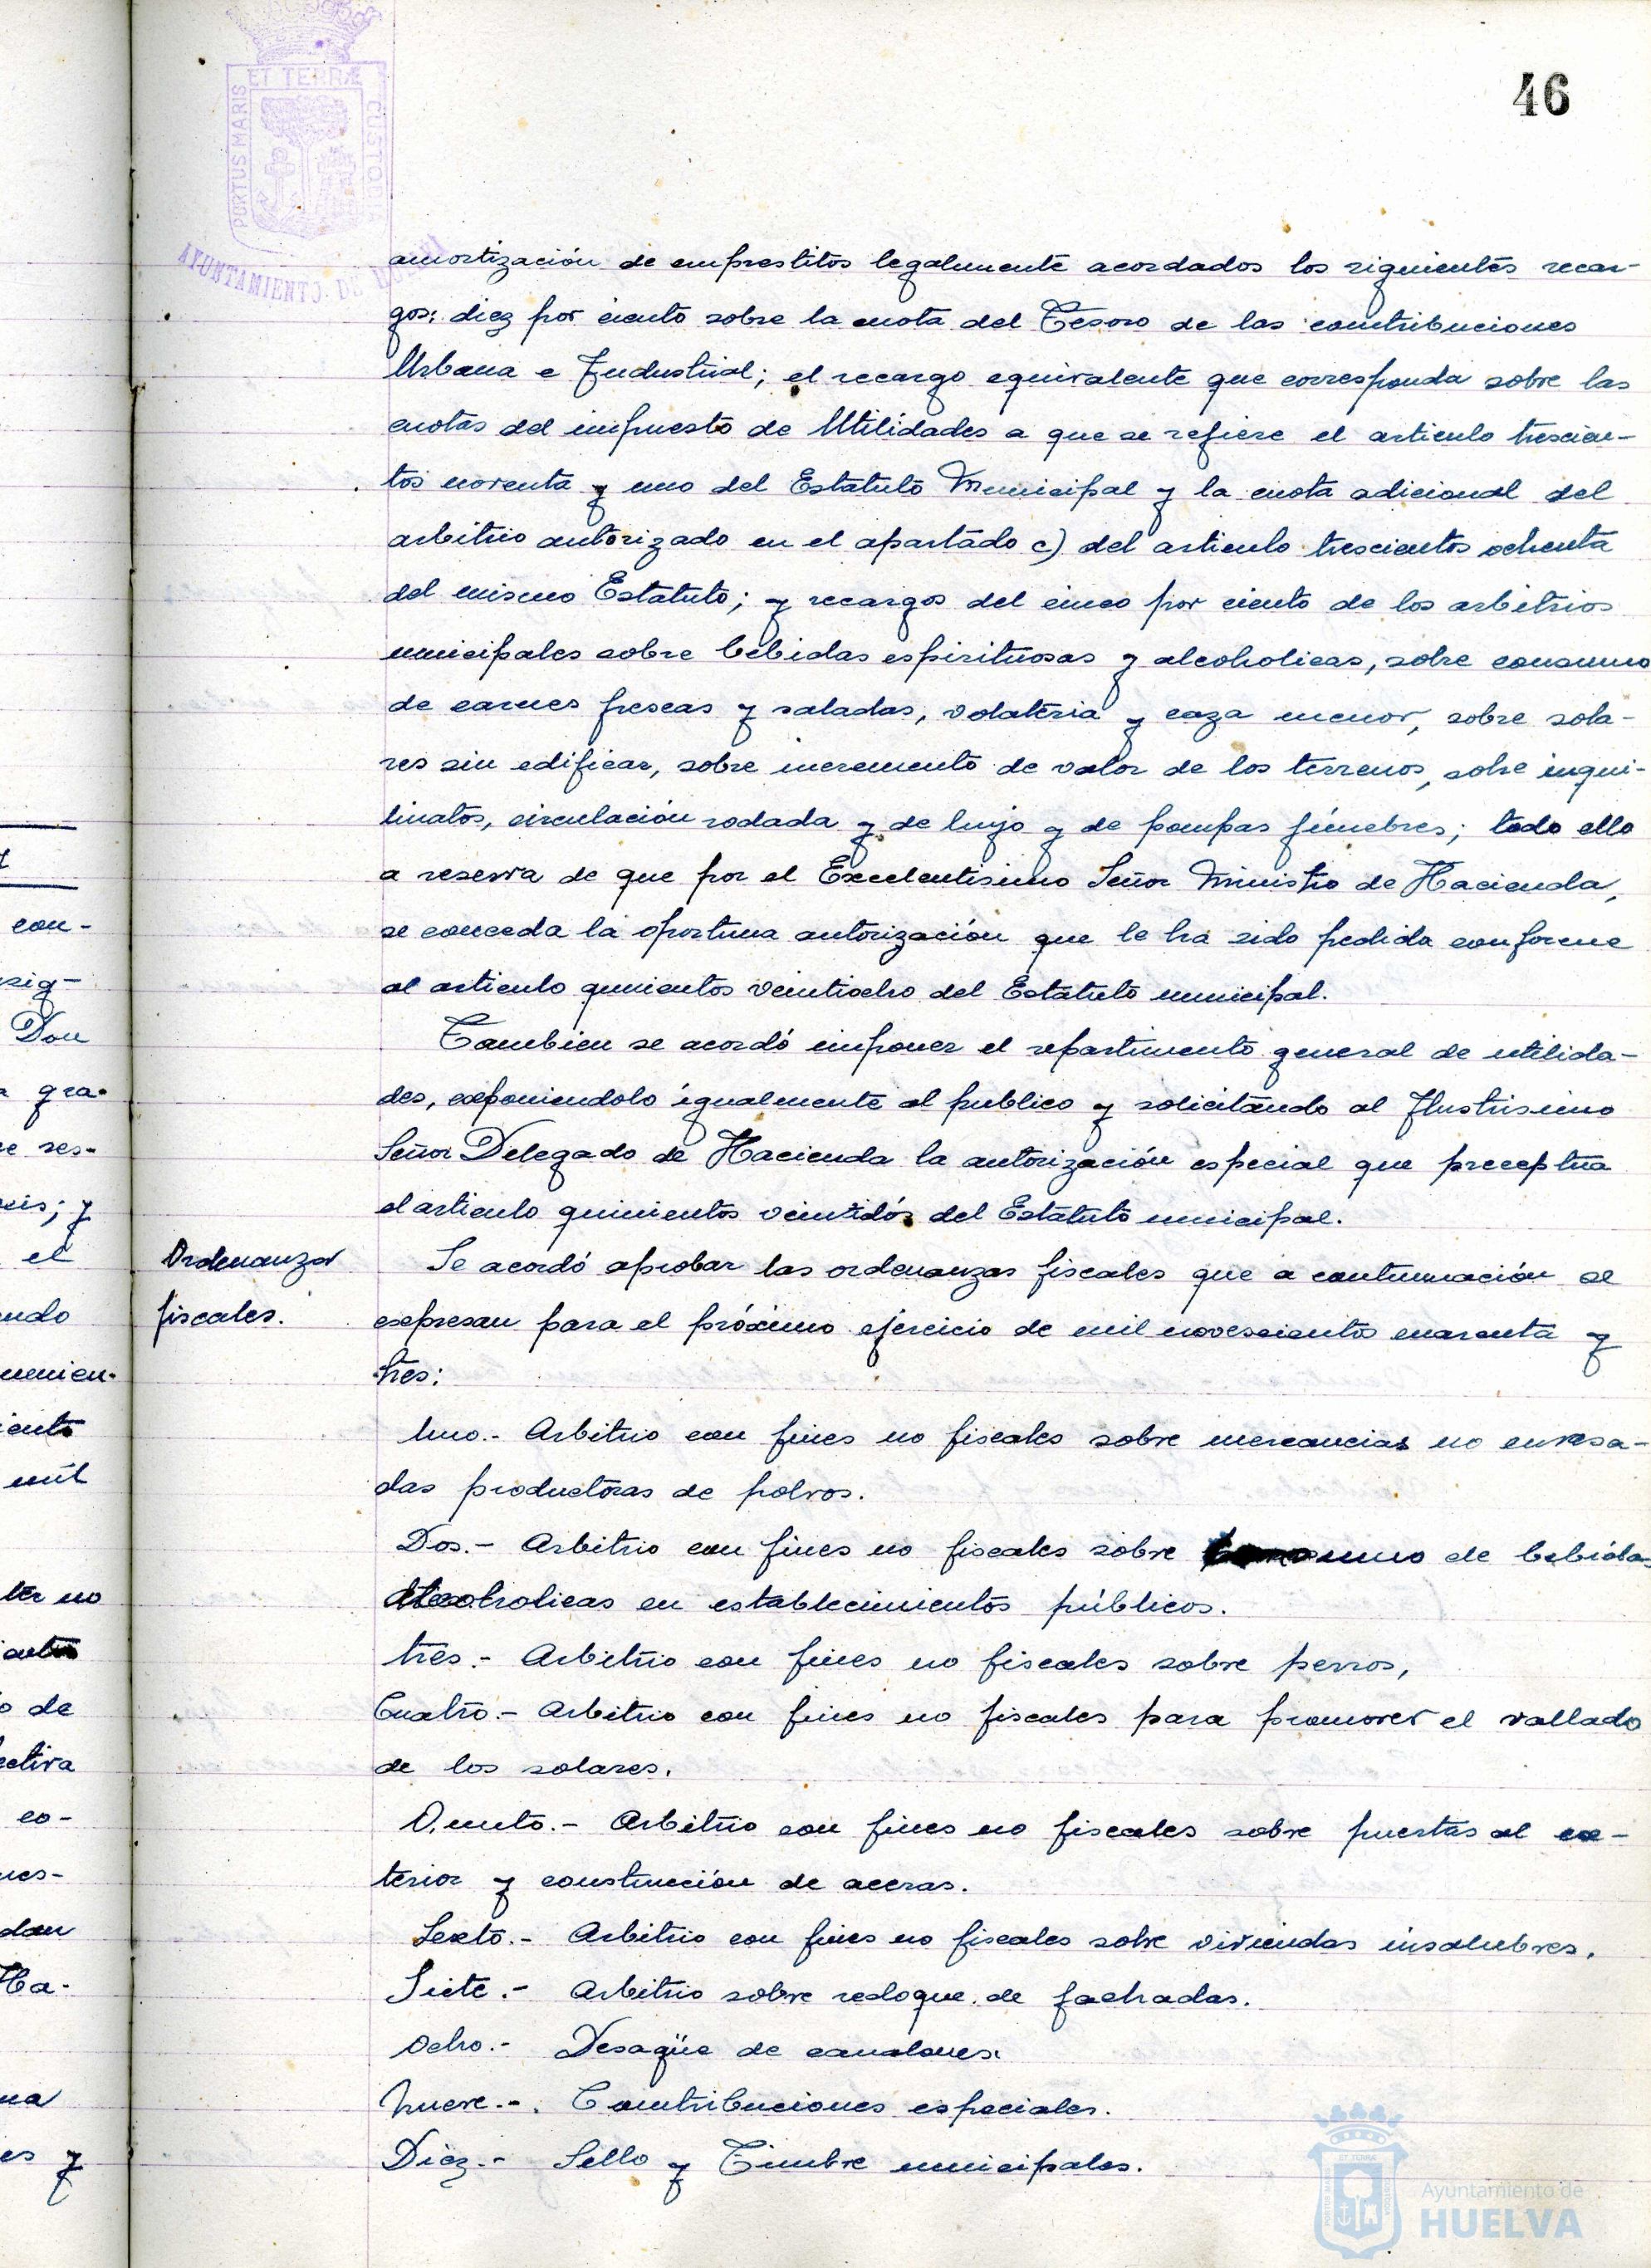 46
PORTUS MARIS ET TERRÆ CUSTODIA
AYUNTAMIENTO DE HUELVA
amortización de emprestitos legalmente acordados los siguientes recar-
gos: diez por ciento sobre la cuota del Tesoro de las contribuciones
Urbana e Industrial; el recargo equivalente que corresponda sobre las
cuotas del impuesto de Utilidades a que se refiere el articulo trescien-
tos noventa y uno del Estatuto Municipal y la cuota adicional del
arbitrio autorizado en el apartado c) del articulo trescientos ochenta
del mismo Estatuto; y recargos del cinco por ciento de los arbitrios
municipales sobre bebidas espirituosas y alcoholicas, sobre consumo
de carnes frescas y saladas, volateria y caza menor, sobre sola-
res sin edificar, sobre incremento de valor de los terrenos, sobre inqui-
linatos, circulación rodada y de lujo y de pompas fúnebres; todo ello
a reserva de que por el Excelentisimo Señor Ministro de Hacienda,
se conceda la oportuna autorización que le ha sido pedida conforme
al articulo quinientos veintiocho del Estatuto municipal.
Tambien se acordó imponer el repartimento general de utilida-
des, exponiendolo igualmente al publico y solicitando al Ilustrisimo
Señor Delegado de Hacienda la autorización especial que preceptúa
el articulo quinientos veintidós del Estatuto municipal.
Ordenanzas
fiscales.
Se acordó aprobar las ordenanzas fiscales que a continuación se
expresan para el próximo ejercicio de mil novescientos cuarenta y
tres:
Uno.- Arbitrio con fines no fiscales sobre mercancias no envasa-
das productoras de polvos.
Dos.- Arbitrio con fines no fiscales sobre consumo de bebidas
alcoholicas en establecimientos públicos.
tres.- Arbitrio con fines no fiscales sobre perros,
Cuatro.- Arbitrio con fines no fiscales para promover el vallado
de los solares.
Quinto.- Arbitrio con fines no fiscales sobre puertas al ex-
terior y construcción de aceras.
Sexto.- Arbitrio con fines no fiscales sobre viviendas insalubres.
Siete.- Arbitrio sobre reloque de fachadas.
Ocho.- Desagüe de canalones.
Nueve.-. Contribuciones especiales.
Diez.- Sello y Timbre municipales.
con-
sig-
Don
gra-
res-
y
el
ndo
ento
mil
ter no
o de
ectiva
co-
nes-
dan
Ha-
na
es y
Ayuntamiento de
HUELVA